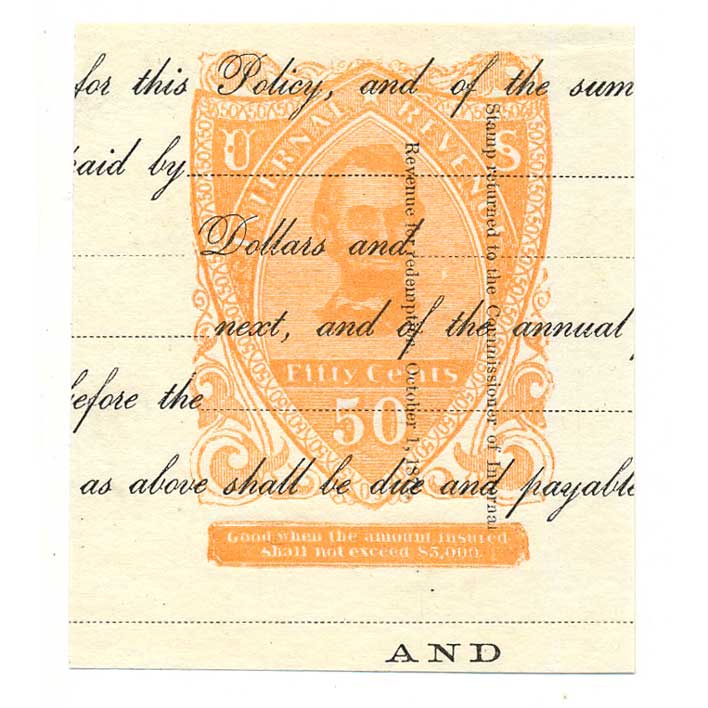 for this Policy, and of the sum
aid by
Dollars and
next, and of the annual
efore the
as above shall be due and payable
AND
U S
TERNAL REVEN
Fifty Cents
50
Good when the amount insured
shall not exceed $5,000.
Stamp returned to the Commissioner of Internal
Revenue for redemption, October 1,